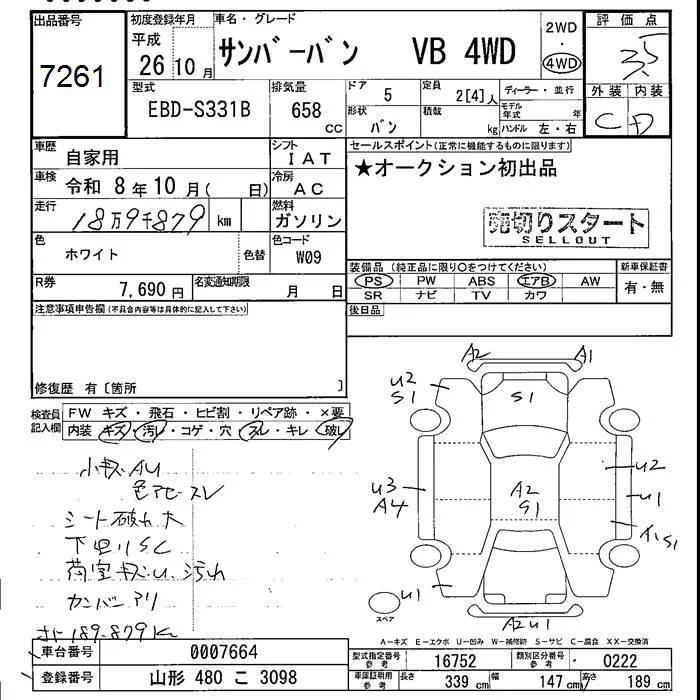 出品番号
7261
初度登録年月
平成
26 10 月
車名・グレード
サンバーバン VB 4WD
2WD
・
4WD
評価点
3.5
外装 内装
C D
型式
EBD-S331B
排気量
658
cc
ドア
5
形状
バン
定員
2[4]人
積載
kg
ディーラー・並行
モデル
年式 年
ハンドル 左・右
車歴
自家用
シフト
IAT
車検
令和 8 年 10 月( 日)
冷房
AC
走行
18万9千879 km
燃料
ガソリン
色
ホワイト
色替
色コード
W09
R券
7,690 円
名変通知期限
月 日
セールスポイント(正常に機能するものに限ります)
★オークション初出品
売切りスタート
SELLOUT
装備品(純正品に限り○をつけてください)
PS PW ABS エアB AW
SR ナビ TV カワ
新車保証書
有・無
後日品
注意事項申告欄(不具合内容等は具体的に記入して下さい)
修復歴 有〔箇所 〕
検査員
記入欄
FW キズ・飛石・ヒビ割・リペア跡・×要
内装 キズ・汚レ・コゲ・穴・スレ・キレ・破レ
小キズ AU
シート破れ大
下回りSC
荷室キズU、汚れ
カンバンアリ
189.879K
A2 A1
U2
S1
S1
U3
A4
A2
S1
U2
U1
S1
U1
A2U1
スペア
A-キズ E-エクボ U-凹み W-補修跡 S-サビ C-腐食 XX-交換済
車台番号
0007664
登録番号
山形 480 こ 3098
型式指定番号
参考
16752
類別区分番号
参考
0222
車庫証明用
参考
長さ
339 cm
幅
147 cm
高さ
189 cm